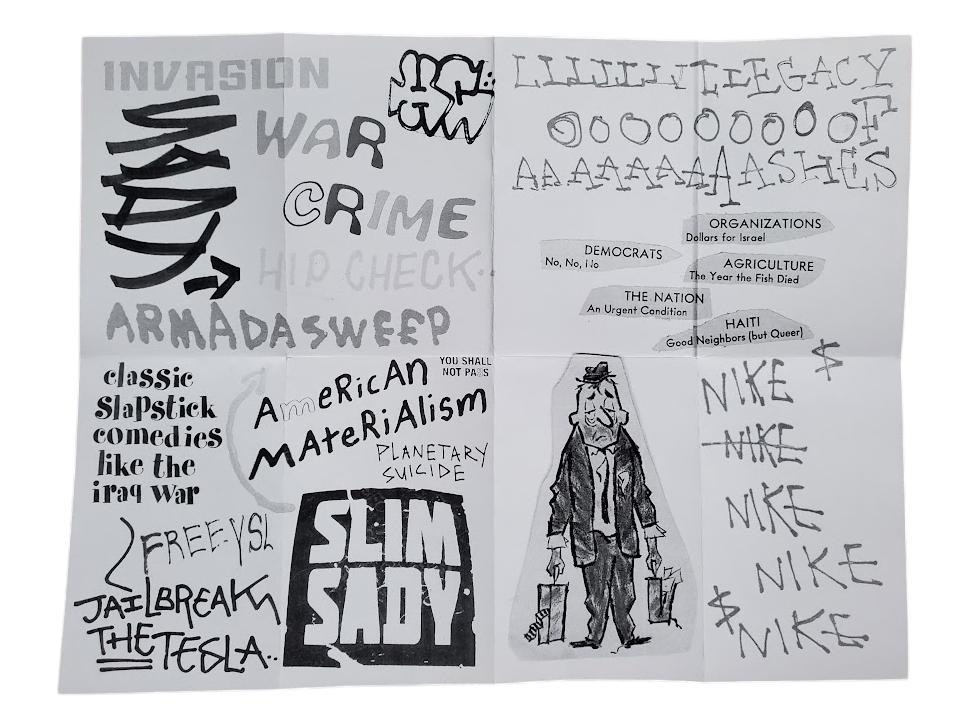 INVASION
WAR
CRIME
HIP CHECK
ARMADASWEEP
LLLLLLLLEGACY
OOOOOOOOOF
AAAAAAAASHES
ORGANIZATIONS
Dollars for Israel
DEMOCRATS
No, No, No
AGRICULTURE
The Year the Fish Died
THE NATION
An Urgent Condition
HAITI
Good Neighbors (but Queer)
classic
slapstick
comedies
like the
iraq war
FREE YSL
JAILBREAK
THE TESLA..
YOU SHALL
NOT PASS
AmeRicAN
MAteRiAlism
PLANETARY
SUICIDE
SLIM
SADY
$
NIKE
NIKE
NIKE
NIKE
$
NIKE